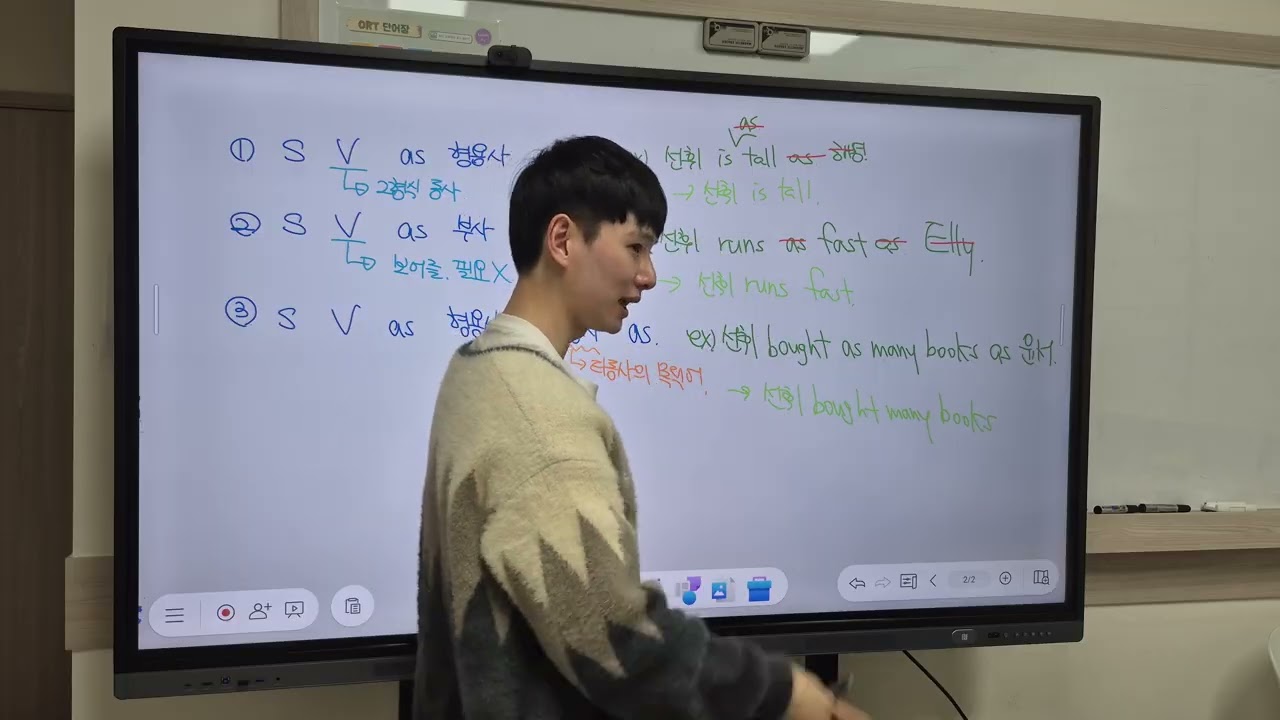 ORT 단어장
as
① S V as 형용사 ex) 선휘 is tall as 해령.
↳ 2형식 동사 → 선휘 is tall.
② S V as 부사 선휘 runs as fast as Elly.
↳ 보어를 필요 X → 선휘 runs fast.
③ S V as 형용사 as. ex) 선휘 bought as many books as 윤서.
↳ 타동사의 목적어. → 선휘 bought many books
2/2